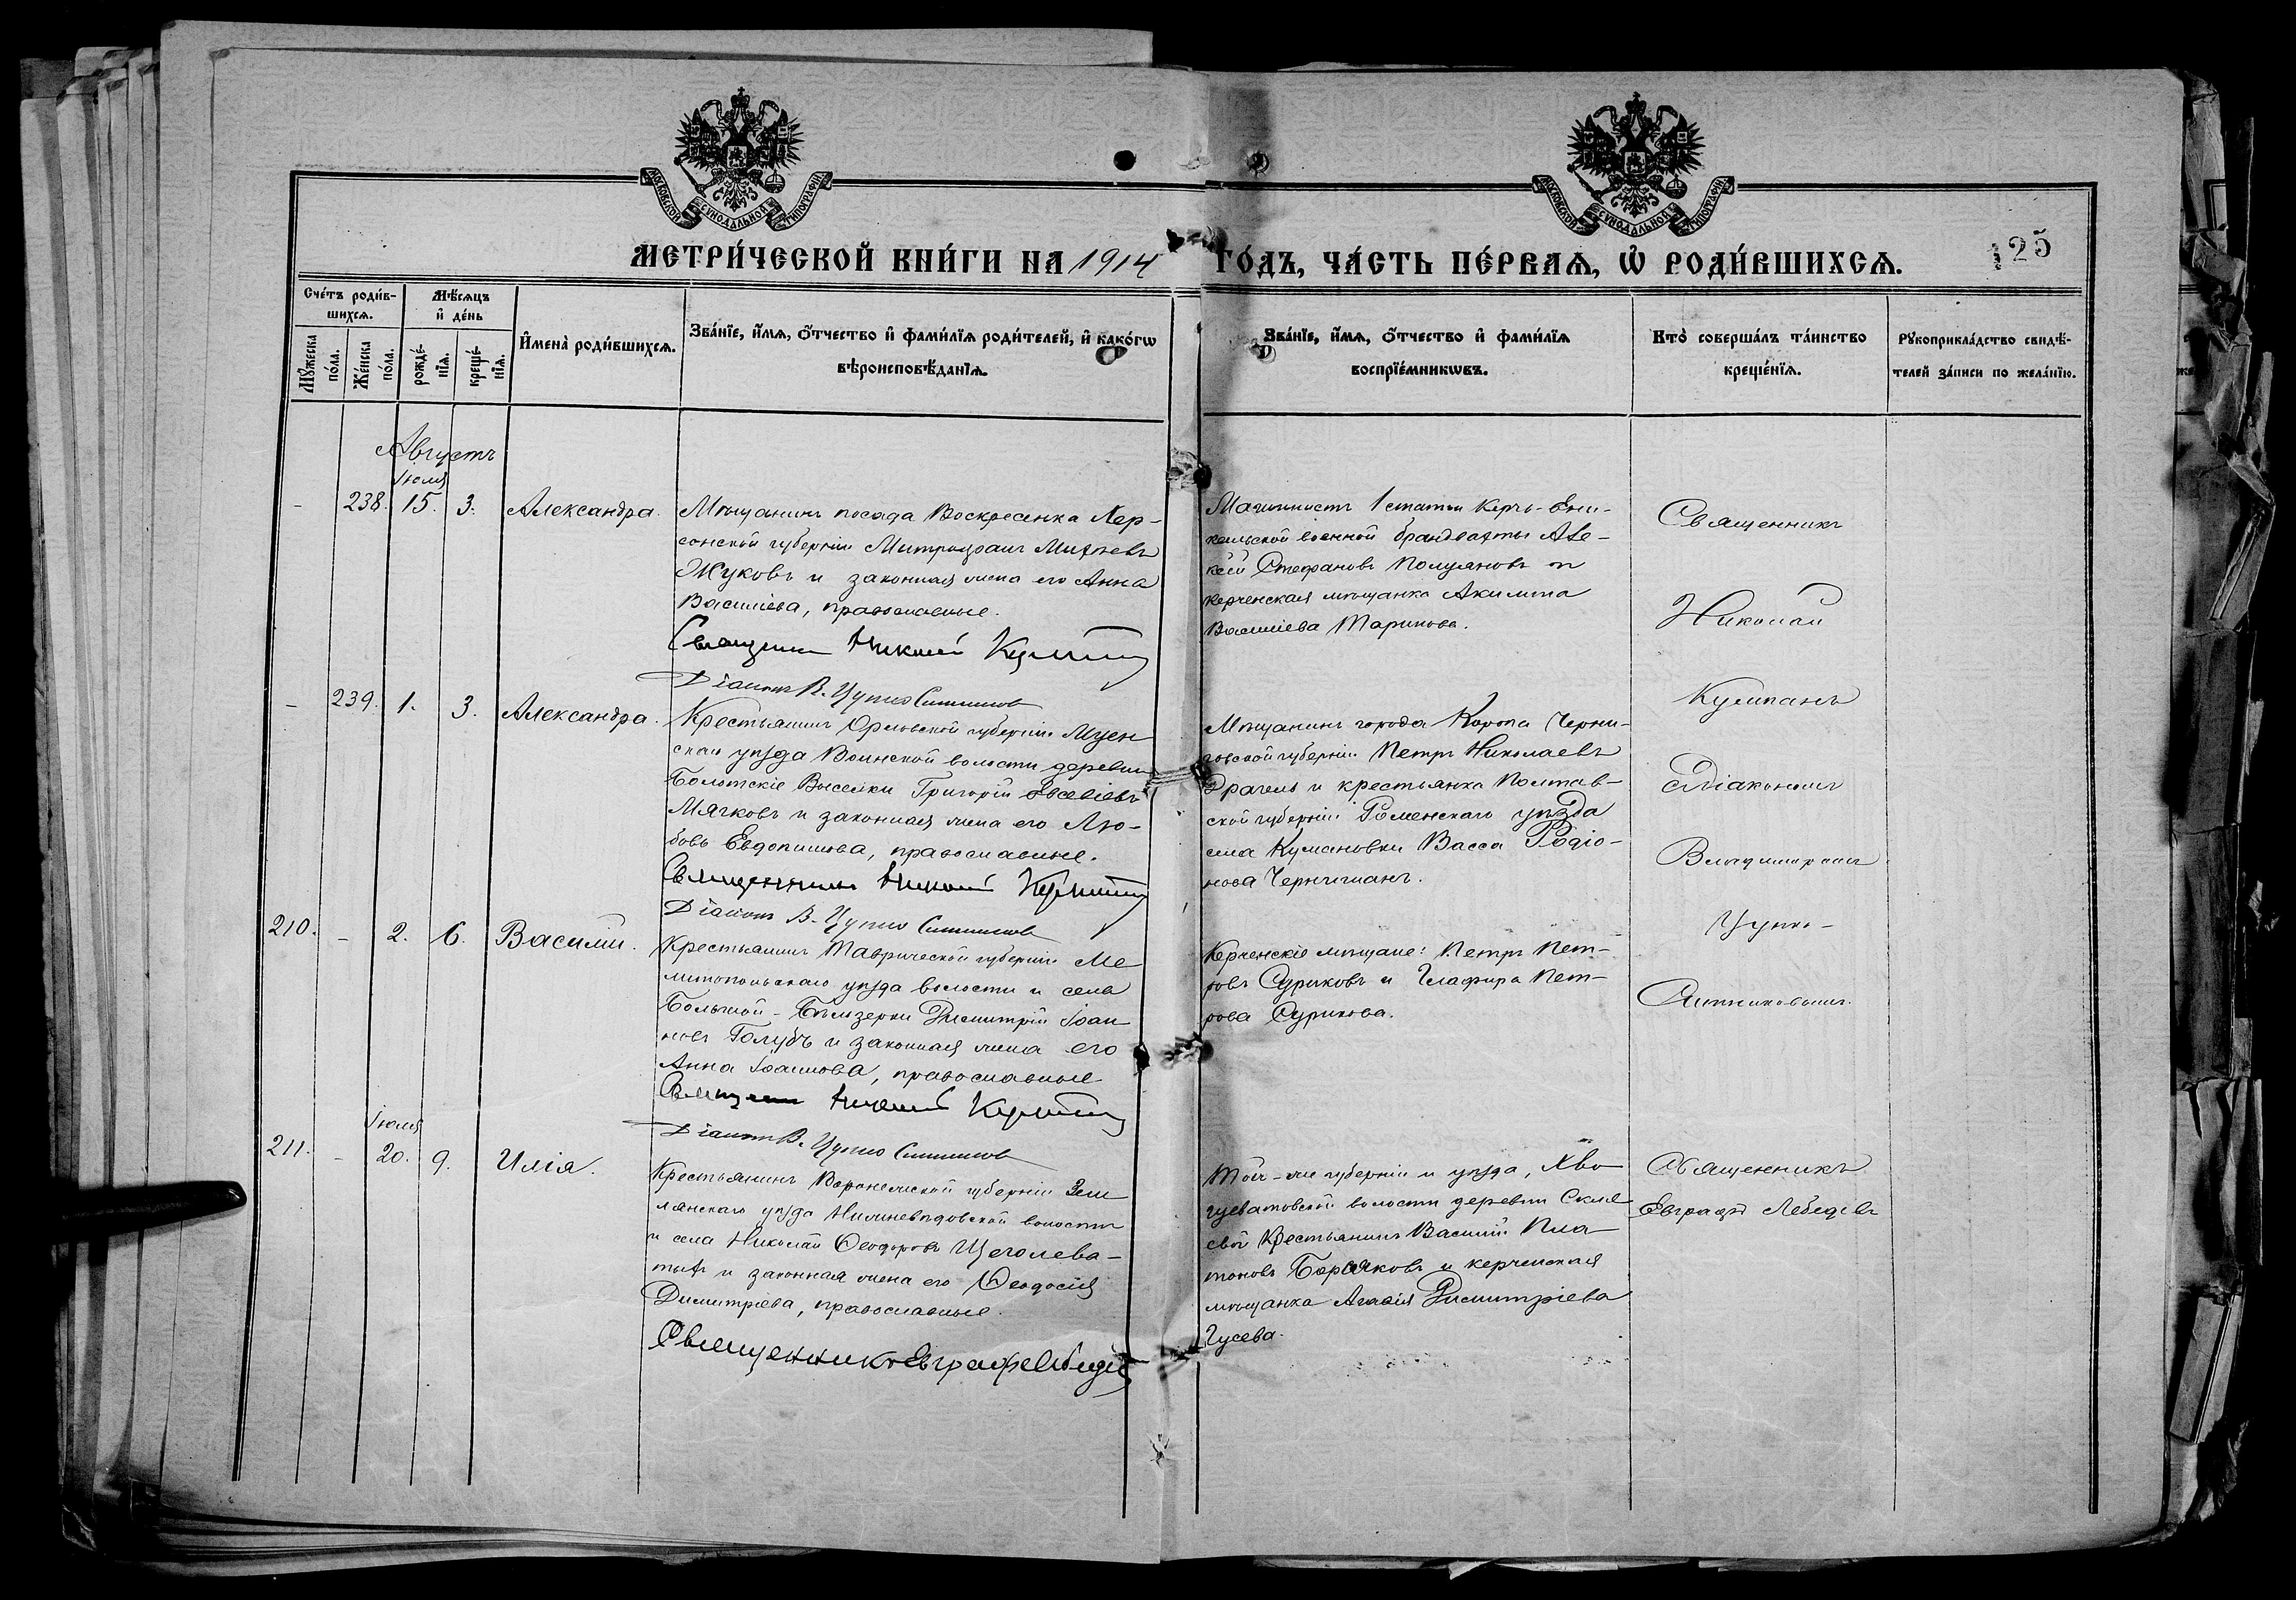 МОСКОВСКОЙ СѴНОДАЛЬНОЙ ТИПОГРАФІИ
МОСКОВСКОЙ СѴНОДАЛЬНОЙ ТИПОГРАФІИ
МЕТРИ́ЧЕСКОЙ КНИ́ГИ НА 1914 ГО́ДЪ, ЧА́СТЬ ПЕ́РВАѦ, Ѡ҆ РОДИ́ВШИХСѦ.
125
Сче́тъ роди́в-
шихсѧ.
Мꙋ́жеска по́ла.
Же́нска по́ла.
Мѣ́сѧцъ
и҆ де́нь
рожде́-
нїѧ.
креще́-
нїѧ.
И҆мена̀ роди́вшихсѧ.
Зва́нїе, и҆́мѧ, ѻ҆́тчество и҆ фами́лїѧ роди́телей, и҆ како́гѡ
вѣроисповѣ́данїѧ.
Зва́нїе, и҆́мѧ, ѻ҆́тчество и҆ фами́лїѧ
воспрїе́мникѡвъ.
Кто̀ соверша́лъ та́инство
креще́нїѧ.
Рꙋкоприкла́дство свидѣ́-
телей за́писи по жела́нїю.
Августъ
Іюля
- 238. 15. 3. Александра.
Мѣщанинъ посада Воскресенка Хер-
сонской губерніи Митрофанъ Матѳевъ
Жуковъ и законная жена его Анна
Василіева, православные.
Священникъ Николай Кумпанъ
Діаконъ В. Цупко Ситниковъ
Машинистъ 1 статьи Керчь-Ени-
кальской военной брандвахты Але-
ксій Стефановъ Полуяновъ и
керченская мѣщанка Акилина
Василіева Тарикова.
Священникъ
Николай
Кумпанъ
съ Діакономъ
Владимиромъ
Цупко-
Ситниковымъ.
- 239. 1. 3. Александра.
Крестьянинъ Орловской губерніи Мцен
скаго уѣзда Воинской волости деревни
Болотскіе Выселки Григорій Евсевіевъ
Мячковъ и законная жена его Лю-
бовь Евдокимова, православные.
Священникъ Николай Кумпанъ
Діаконъ В. Цупко Ситниковъ
Мѣщанинъ города Коропа Черни-
говской губерніи Петръ Николаевъ
Драгель и крестьянка Полтав-
ской губерніи Роменскаго уѣзда
села Кумановки Васса Родіо-
нова
210. - 2. 6. Василій.
Крестьянинъ Таврической губерніи Ме
литопольскаго уѣзда волости и села
Большой-Бѣлозерки Димитрій Іоан
новъ Голубъ и законная жена его
Анна Іоаннова, православные
Священникъ Николай Кумпанъ
Діаконъ В. Цупко Ситниковъ
Керченскіе мѣщане: Петръ Пет-
ровъ Суриковъ и Глафира Пет-
рова Сурикова.
Іюля
211. - 20. 9. Илія.
Крестьянинъ Воронежской губерніи Зем
лянскаго уѣзда Нижневѣдовской волости
и села Николай Ѳеодоровъ Щеголева-
тыхъ и законная жена его Ѳеодосія
Димитріева, православные.
Священникъ Евграфъ Лебедевъ
Той-же губерніи и уѣзда, Хво
щеватовской волости деревни Скля
евой крестьянинъ Василій Пла
тоновъ и керченская
мѣщанка Агафія Димитріева
Гусева.
Священникъ
Евграфъ Лебедевъ